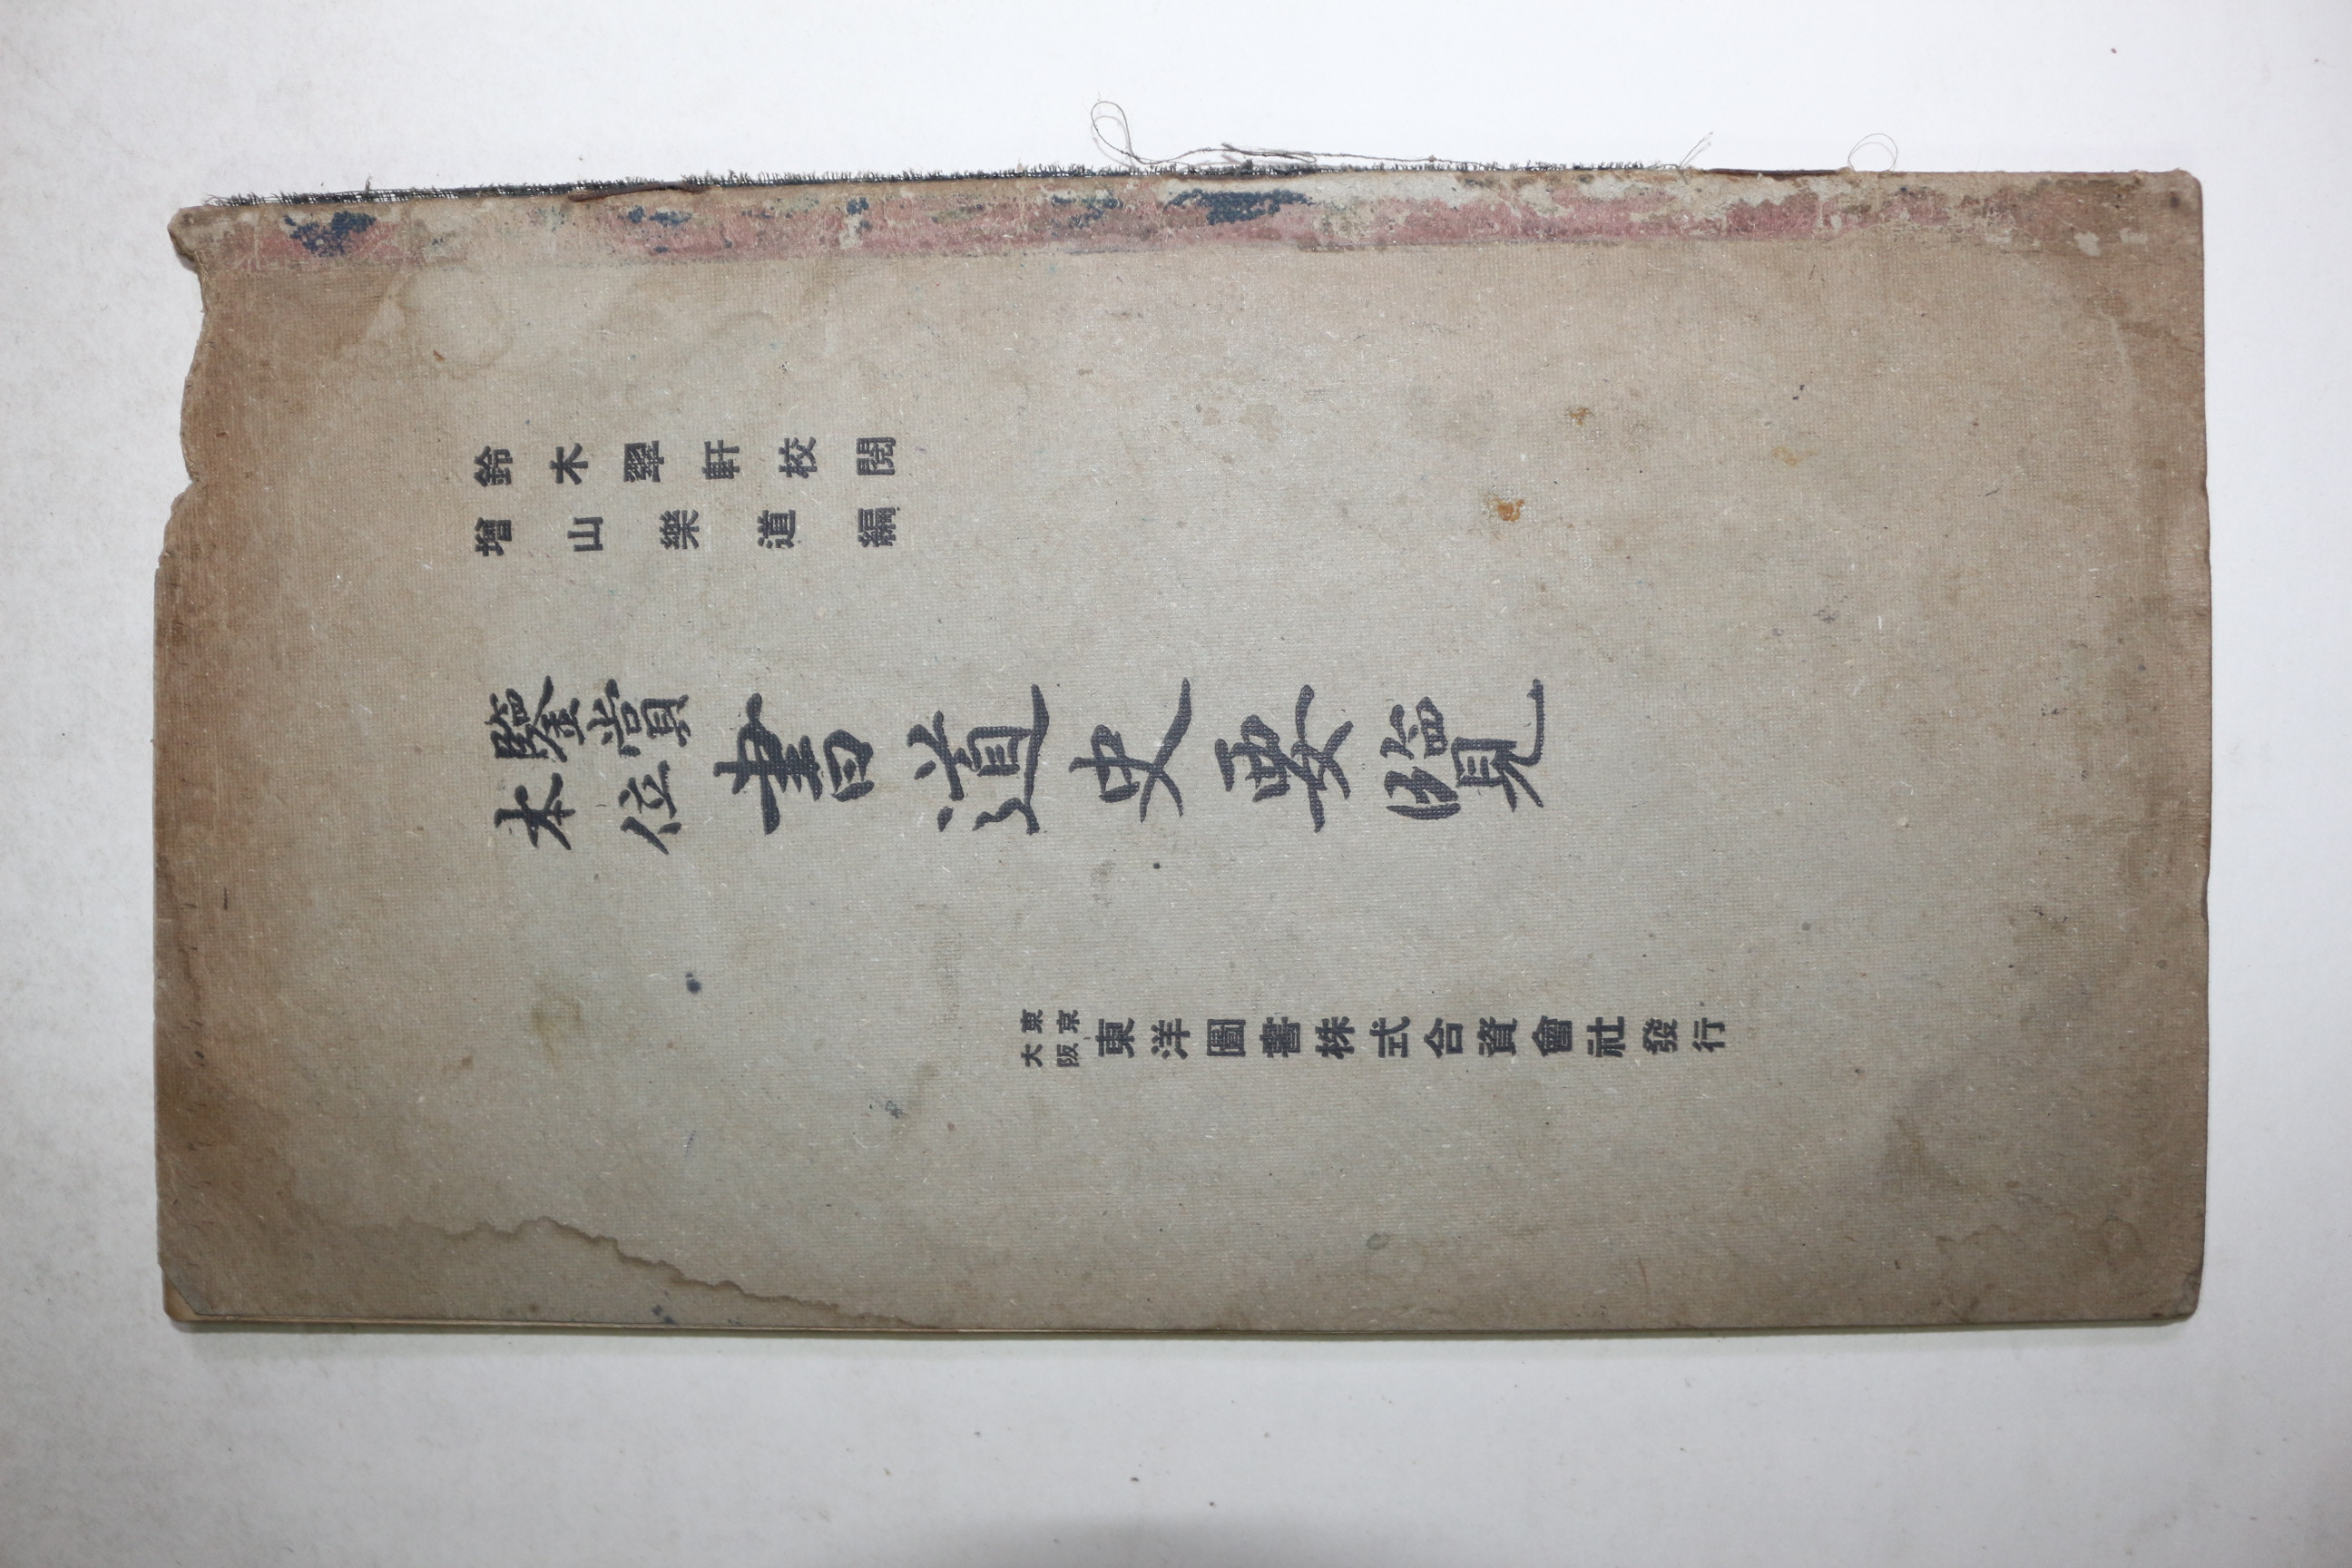 鈴木翠軒校閲
增山樂道編
鑒賞本位
書道史要覽
東京
大阪
東洋圖書株式合資會社發行